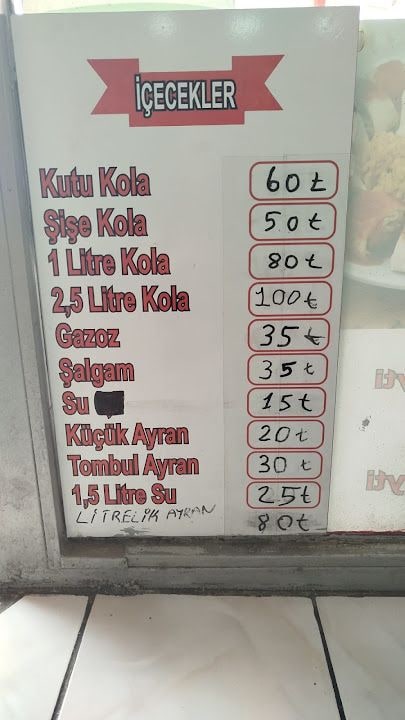 İÇECEKLER
Kutu Kola 60₺
Şişe Kola 50₺
1 Litre Kola 80₺
2,5 Litre Kola 100₺
Gazoz 35₺
Şalgam 35₺
Su 15₺
Küçük Ayran 20₺
Tombul Ayran 30₺
1,5 Litre Su 25₺
LİTRELİK AYRAN 80₺